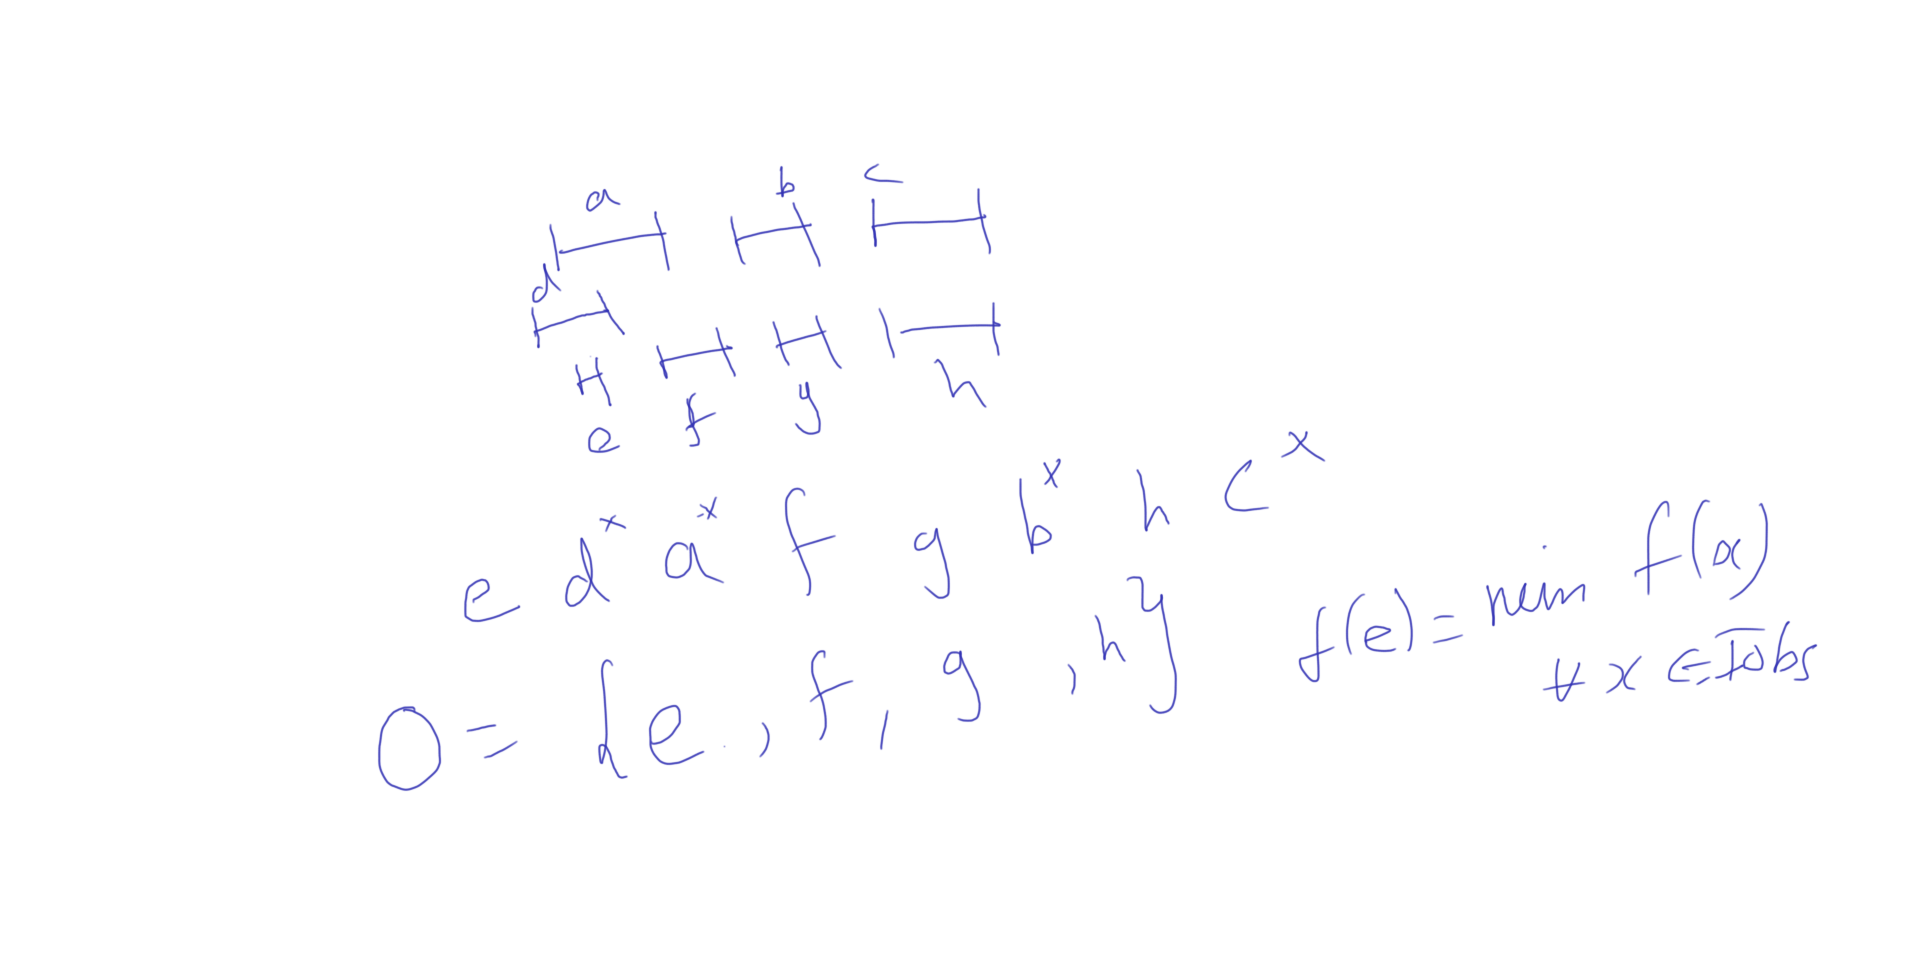 a b c
d
e f g h
e d^x a^x f g b^x h c^x
O = {e, f, g, h} f(e) = min f(x)
∀ x ∈ Jobs